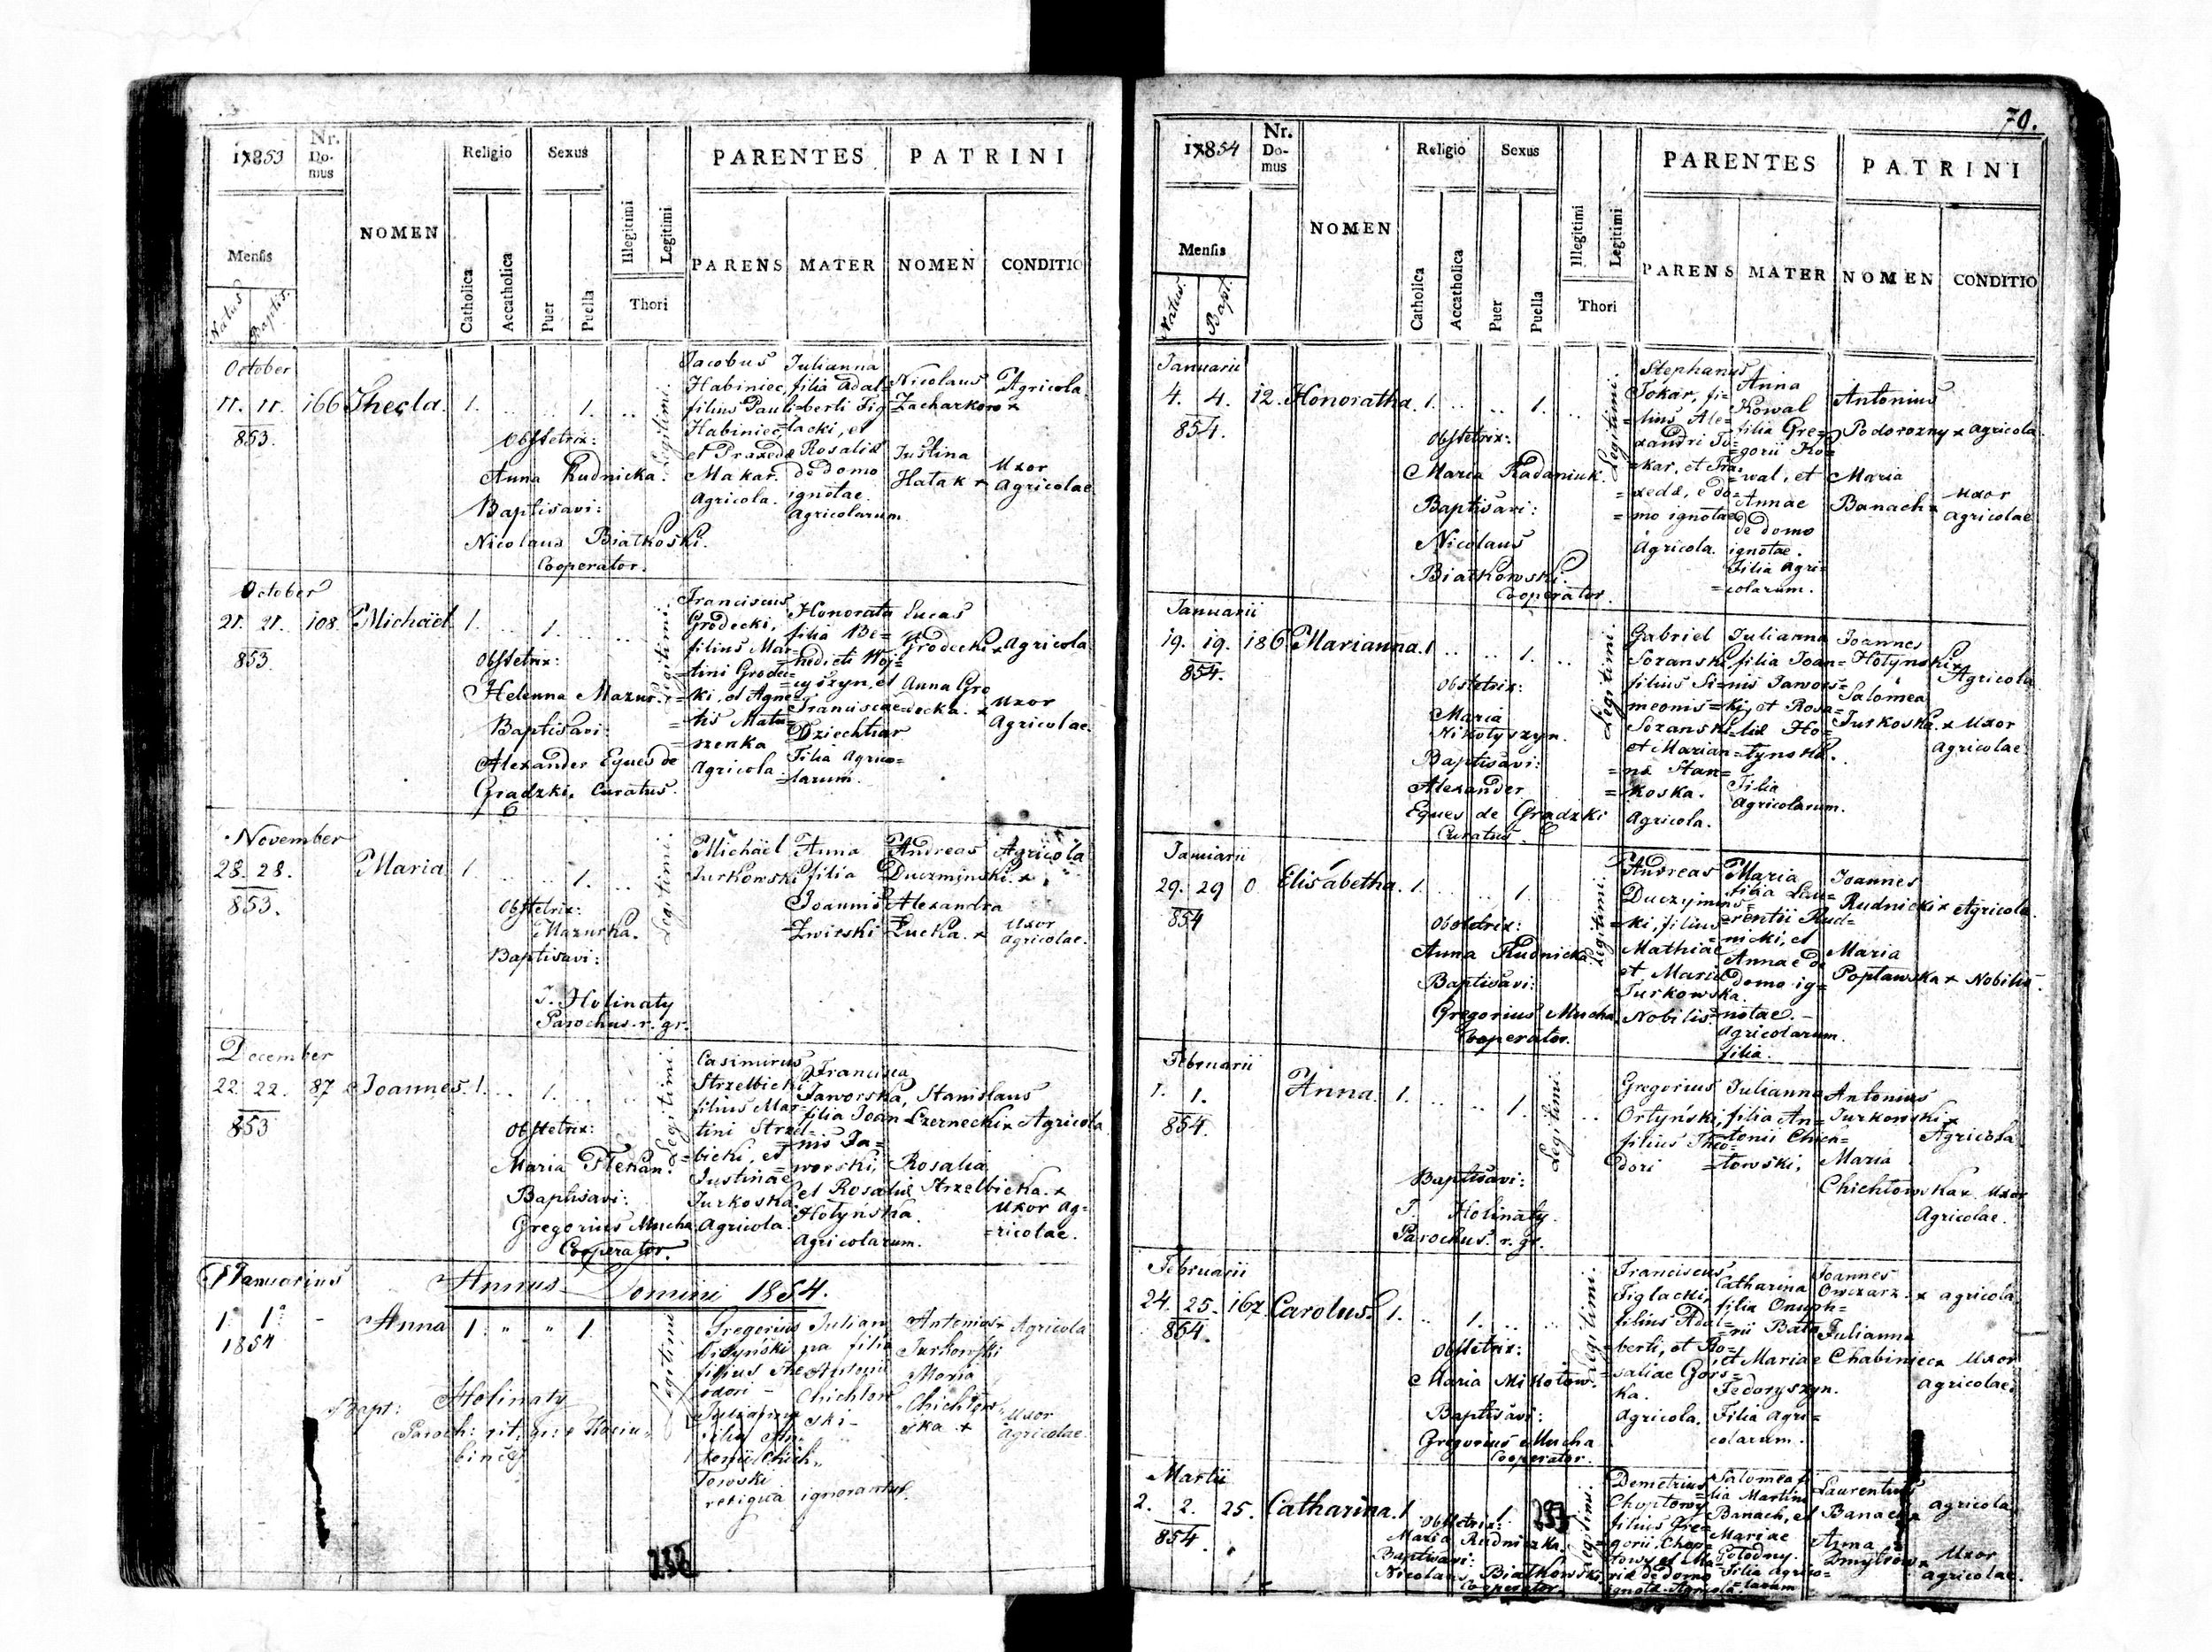 1x853
Nr. Do- mus
NOMEN
Religio
Sexus
PARENTES
PATRINI
Mensis
Natus
Baptis.
Catholica
Accatholica
Puer
Puella
Illegitimi
Legitimi
Thori
PARENS
MATER
NOMEN
CONDITIO
October
11. 11. 166 Thecla. 1. 1.
853.
Legitimi.
Obstetrix:
Anna Rudnicka.
Baptisavi:
Nicolaus Białkoski.
Cooperator.
Jacobus
Habiniec,
filius Pauli
Habiniec,
et Praxedæ
Makar.
Agricola.
Julianna
filia Adal=
berti Fig=
lacki, et
Rosaliæ
de domo
ignotae.
Agricolarum
Nicolaus
Zacharkow x
Justina
Hatak x
Agricola.
Uxor
Agricolae
October
21. 21. 108. Michäel 1. 1.
853.
Legitimi.
Obstetrix:
Helenna Mazur.
Baptisavi:
Alexander Eques de
Gradzki, Curatus.
Franciscus
Grodecki,
filius Mar=
tini Grodec=
ki, et Agne=
tis Matu=
szenka
Agricola.
Honorata
filia Be=
nedicti Woj=
cyszyn, et
Franciscae
Dziechtiar
Filia Agrico=
larum.
Lucas
Grodecki x
Anna Gro
decka. x
Agricola
Uxor
Agricolae.
November
28. 28. Maria 1. 1.
853.
Legitimi.
Obstetrix:
Mazurka.
Baptisavi:
T. Holinaty
Parochus. r. gr.
Michäel
Jurkowski
Anna
filia
Joannis
Zwirski
Andreas
Duczminski. x
Alexandra
Łucka. x
Agricola
Uxor
Agricolae.
December
22. 22. 87 Joannes. 1. 1.
853
Legitimi.
Obstetrix:
Maria Stekan.
Baptisavi:
Gregorius Mucha
Cooperator.
Casimirus
Strzelbicki
filius Mar=
tini Strzel=
bicki, et
Justinae
Jurkoska.
Agricola.
Francisca
Jaworska,
filia Joan
nis Ja=
worski,
et Rosaliæ
Hołyńska.
Agricolarum.
Stanislaus
Czernecki x
Rosalia
Strzelbicka. x
Agricola
Uxor Ag=
ricolae.
Januarius
Annus Domini 1854.
1. 1. - Anna 1. " " 1.
1854
Legitimi
Bapt: Holinaty
Paroch: rit: gr:
Gregorius
filius The
odori -
Julianna
filia An
tonii Chich
łowski
reliqua ignorantur.
Julian
na filia
Antonii
Chichłow
ski -
Antonius x
Jurkowski
Maria
Chichłow
ska x
Agricola
Uxor
Agricolae
238
70.
1x854
Nr. Do- mus
NOMEN
Religio
Sexus
PARENTES
PATRINI
Mensis
Natus.
Bapt.
Catholica
Accatholica
Puer
Puella
Illegitimi
Legitimi
Thori
PARENS
MATER
NOMEN
CONDITIO
Januarii
4. 4. 12. Honoratha. 1. 1.
854.
Legitimi.
Obstetrix:
Maria Radaniuk.
Baptisavi:
Nicolaus
Białkowski.
Cooperator.
Stephanus
Tokar, fi=
lius Ale=
xandri To=
kar, et Pra=
xedæ, e do=
mo ignotae
Agricola.
Anna
Kowal
filia Gre=
gorii Ko=
wal, et
Annae
de domo
ignotae.
Filia Agri=
colarum.
Antonius
Podorozny x
Maria
Banach x
Agricola
Uxor
Agricolae
Januarii
19. 19. 186. Marianna. 1 1.
854.
Legitimi.
Obstetrix:
Maria
Nikołyszyn.
Baptisavi:
Alexander
Eques de Gradzki
Curatus.
Gabriel
Sozanski,
filius Si=
meonis
Sozanski
et Marian=
næ Stan=
koska.
Agricola.
Julianna
filia Joan=
nis Jawors=
ki, et Rosa=
liæ Ho=
łynska.
Filia
Agricolarum.
Joannes
Hołynski x
Salomea
Jurkoska. x
Agricola
Uxor
Agricolae
Januarii
29. 29 0 Elisabetha. 1. 1.
854
Legitimi.
Obstetrix:
Anna Rudnicka
Baptisavi:
Gregorius Mucha
Cooperator.
Andreas
Duczymins=
ki, filius
Mathiae
et Mariæ
Jurkowska.
Nobilis.
Maria
filia Lau=
rentii Rud=
nicki, et
Annae de
domo ig=
notae. -
Agricolarum
filia.
Joannes
Rudnicki x
Maria
Popławska x
Agricola
Nobilis.
Februarii
1. 1. Anna. 1. 1.
854.
Legitimi.
Baptisavi:
T. Holinaty.
Parochus. r. gr.
Gregorius
Ortyński,
filius Theo=
dori
Julianna
filia An=
tonii Chich=
łowski,
Antonius
Jurkowski x
Maria
Chichłowska x
Agricola
Uxor
Agricolae.
Februarii
24. 25. 167. Carolus. 1. 1.
854.
Legitimi.
Obstetrix:
Maria Mikołow.
Baptisavi:
Gregorius Mucha
Cooperator.
Franciscus
Figlacki,
filius Adal=
berti, et Ro=
saliae Gors=
ka.
Agricola.
Catharina
filia Onuph=
rii Bata
et Mariae
Fedoryszyn.
Filia Agri=
colarum.
Joannes
Owczarz. x
Julianna
Chabiniec x
Agricola
Uxor
Agricolae.
Martii
2. 2. 25. Catharina. 1 1
854.
Legitimi.
Obstetrix:
Maria Rudnicka.
Baptisavi:
Nicolaus Białkowski,
Cooperator.
Demetrius
Chopłowy
filius Gre=
gorii Chop=
łowy et Ma=
riæ de domo
ignotæ. Agricola.
Salomea fi
lia Martini
Banach, et
Mariae
Hołodny.
Filia Agrico=
larum
Laurentius
Banach x
Anna
Dmytrow x
Agricola
Uxor
Agricolae.